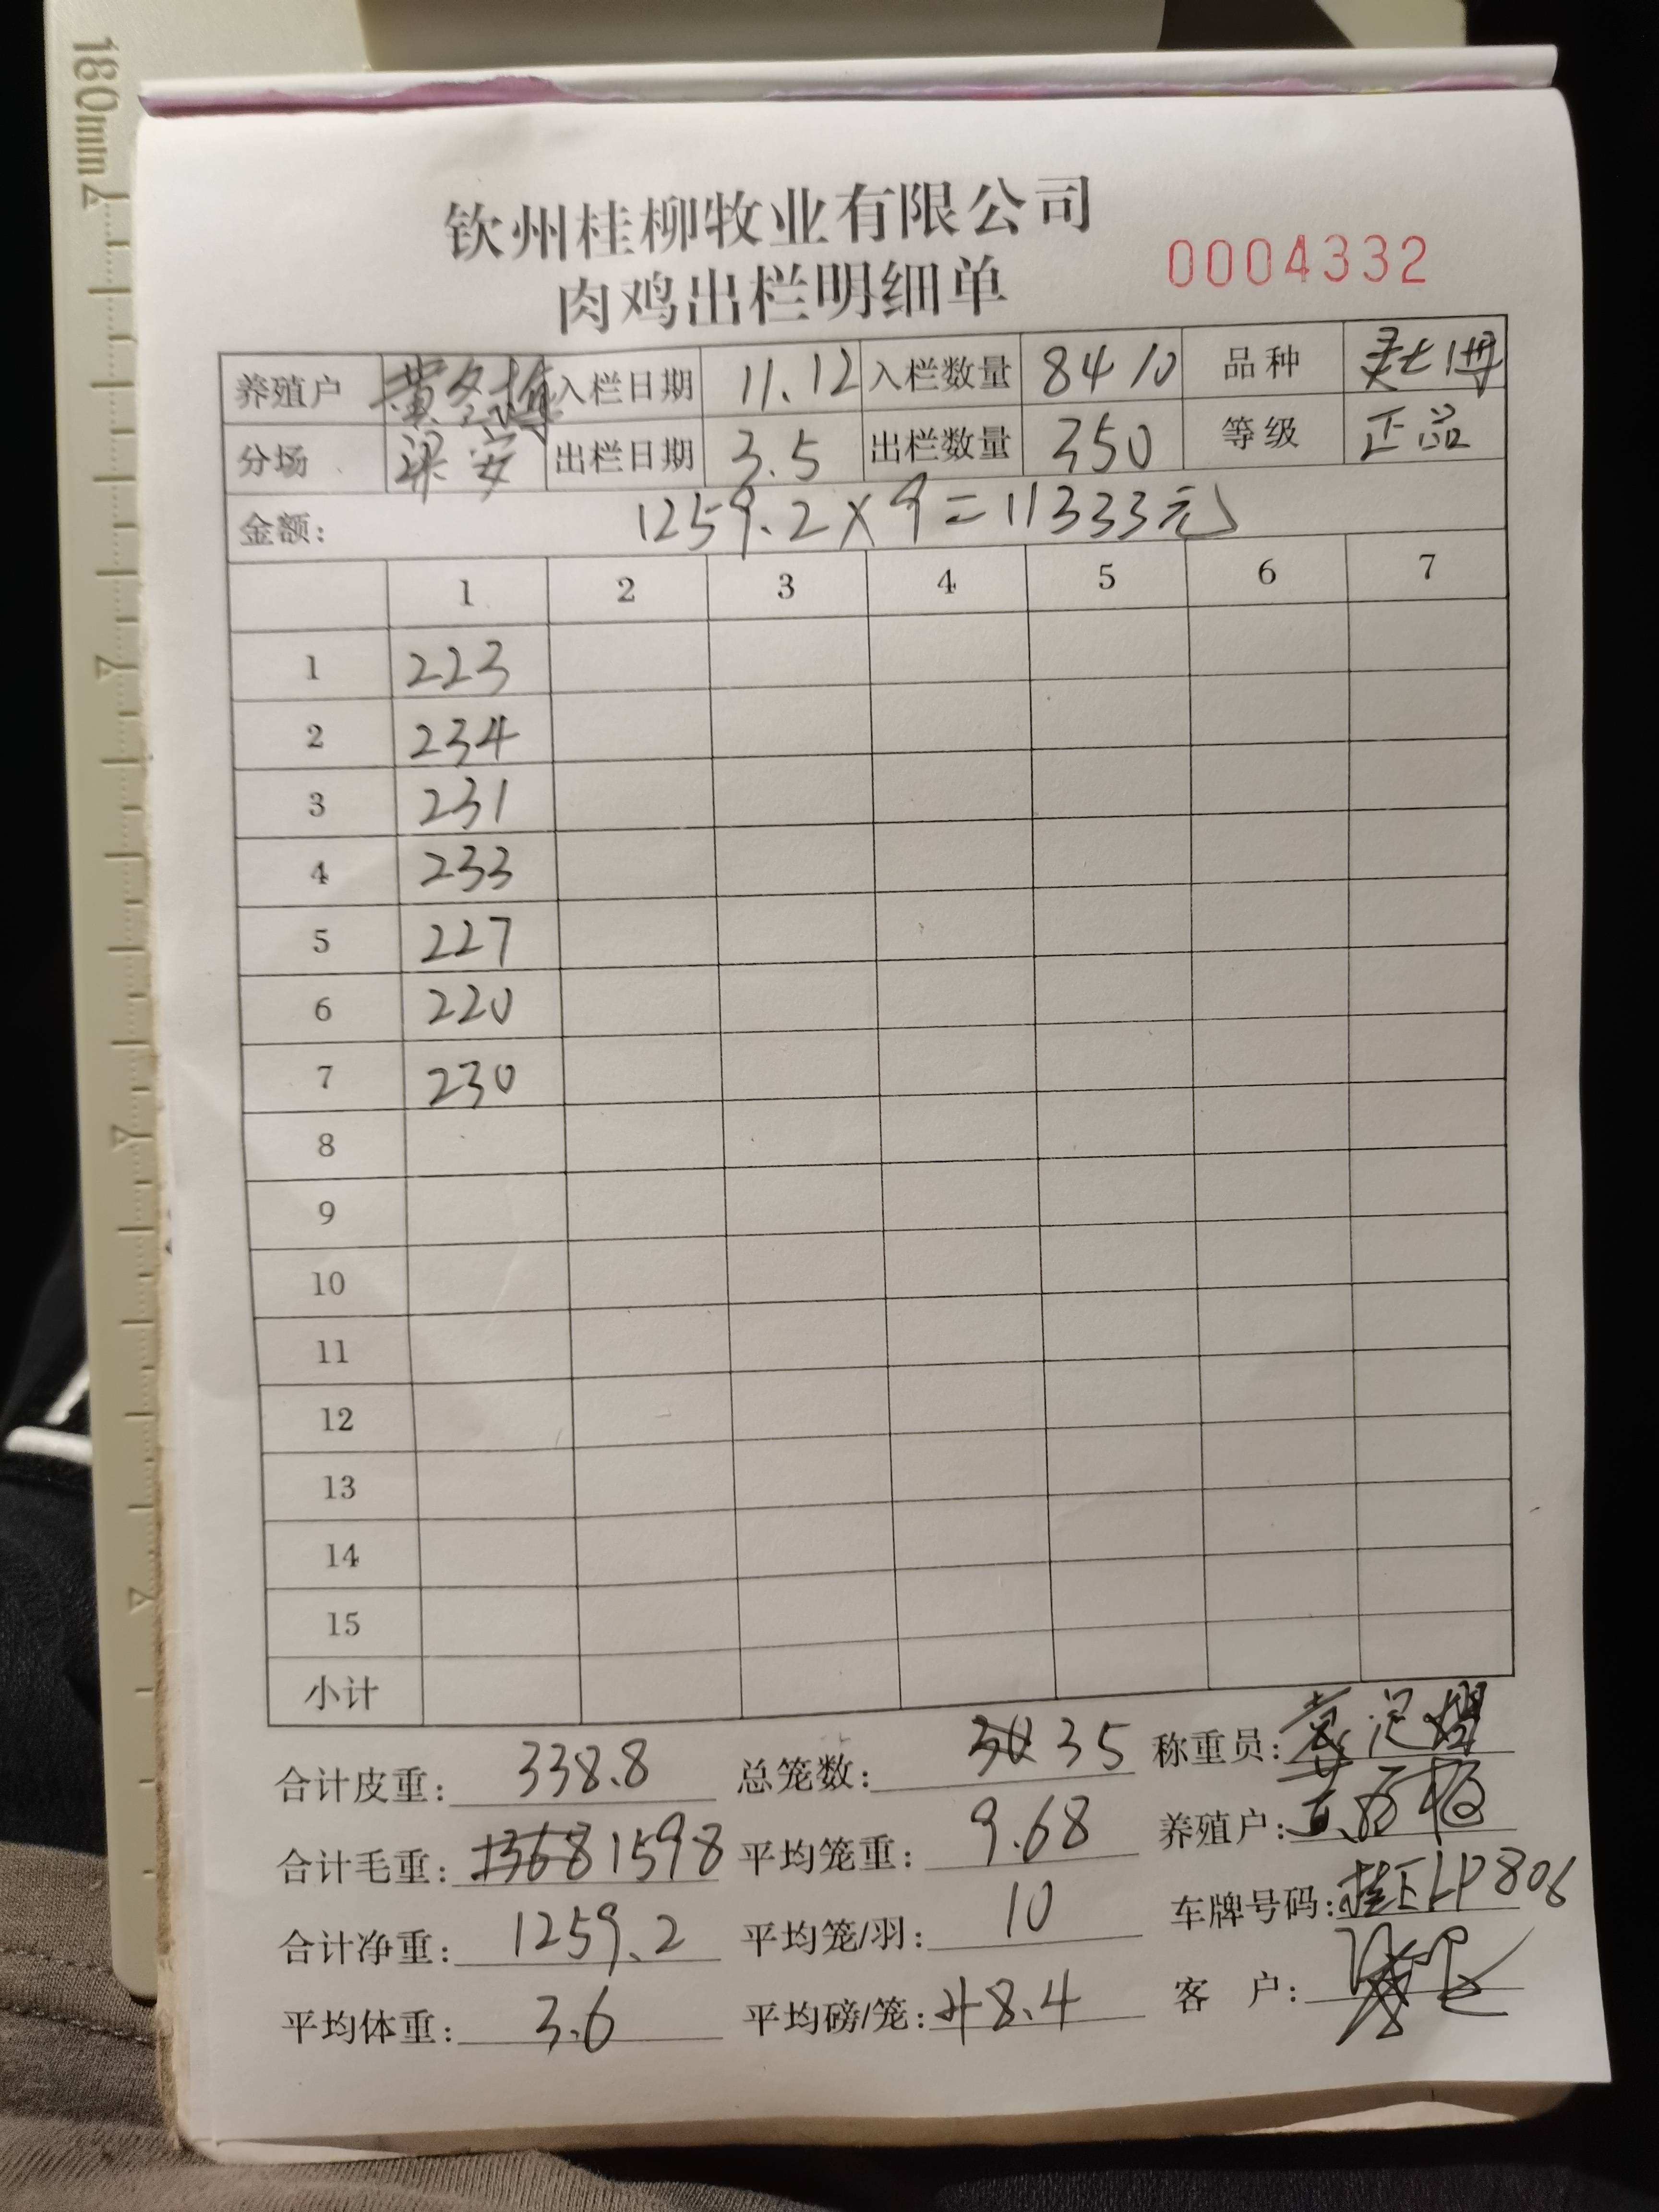 180mm
钦州桂柳牧业有限公司
肉鸡出栏明细单
0004332
养殖户 黄 入栏日期 11.12 入栏数量 8410 品种
分场 梁安 出栏日期 3.5 出栏数量 350 等级 正品
金额: 1259.2×9=11333元
1 2 3 4 5 6 7
1 223
2 234
3 231
4 233
5 227
6 220
7 230
8
9
10
11
12
13
14
15
小计
合计皮重: 338.8 总笼数: 35 称重员:
合计毛重: 1368 1598 平均笼重: 9.68 养殖户:
合计净重: 1259.2 平均笼/羽: 10 车牌号码:
平均体重: 3.6 平均磅/笼: 8.4 客 户: